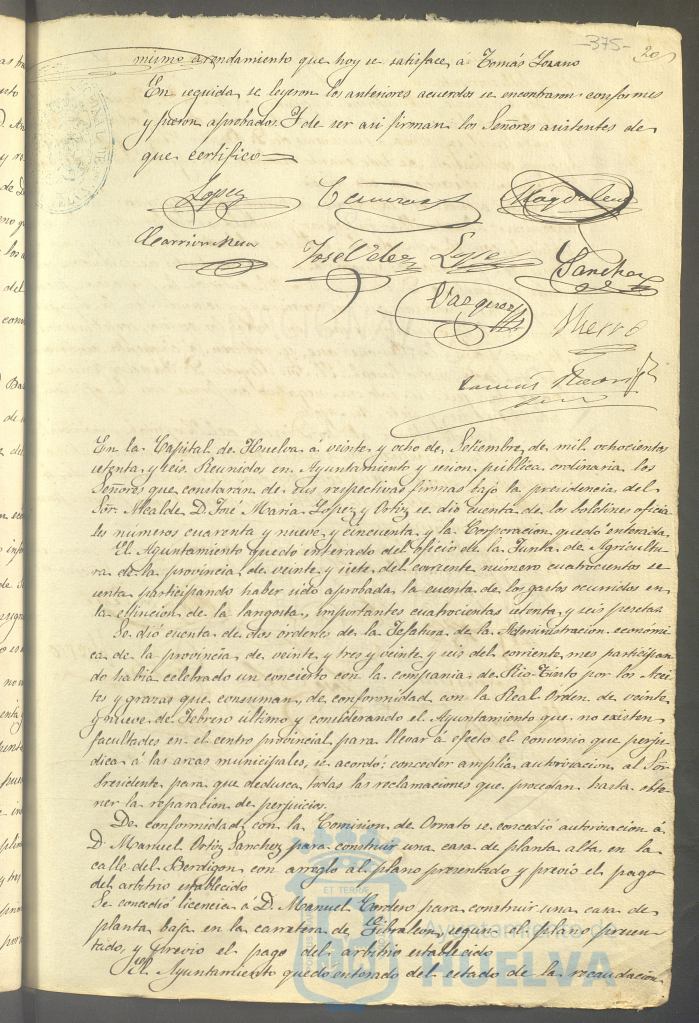 -375-
20
mismo arrendamiento que hoy se satisface á Tomás Lozano
En seguida se leyeron los anteriores acuerdos se encontraron conformes
y fueron aprobados. Y de ser asi firman los Señores asistentes de
que certifico
Lopez
Magdalena
José Velez
Lopez
Sanchez
Vazquez
Hierro
En la Capital de Huelva á veinte y ocho de Setiembre de mil ochocientos
setenta y seis. Reunidos en Ayuntamiento y sesion publica ordinaria los
Señores que constarán de sus respectivas firmas bajo la presidencia del
Sor. Alcalde D. José Maria Lopez y Ortiz se dio cuenta de los boletines oficia
les números cuarenta y nueve y cincuenta y la Corporacion quedó enterada
El Ayuntamiento quedó enterado del oficio de la Junta de Agricultu
ra de la provincia de veinte y siete del corriente numero cuatrocientos se
senta participando haber sido aprobada la cuenta de los gastos ocurridos en
la estincion de la langosta, importantes cuatrocientas setenta y seis pesetas.
Se dió cuenta de dos órdenes de la Jefatura de la Administracion económi
ca de la provincia de veinte y tres y veinte y seis del corriente mes participan
do habia celebrado un concierto con la compania de Rio-Tinto por los Acei
tes y grazas que consuman, de conformidad con la Real Orden de veinte
y nueve de Febrero último y considerando el Ayuntamiento que no existen
facultades en el centro provincial para llevar á efecto el convenio que perju
dica á las arcas municipales, se acordó: conceder amplia autorizacion al Señor
Presidente para que deduzca todas las reclamaciones que procedan hasta obte
ner la reparacion de perjuicios.
De conformidad con la Comision de Ornato se concedió autorizacion á
D. Manuel Ortiz Sanchez para construir una casa de planta alta en la
calle del Berdigon con arreglo al plano presentado y previo el pago
del arbitrio establecido
Se concedió licencia á D. Manuel Cordero para construir una casa de
planta baja en la carretera de Gibraleon, segun el plano presen
tado, y previo el pago del arbitrio establecido
El Ayuntamiento quedó enterado del estado de la recaudacion
ET TERRÆ
Ayuntamiento de
HUELVA